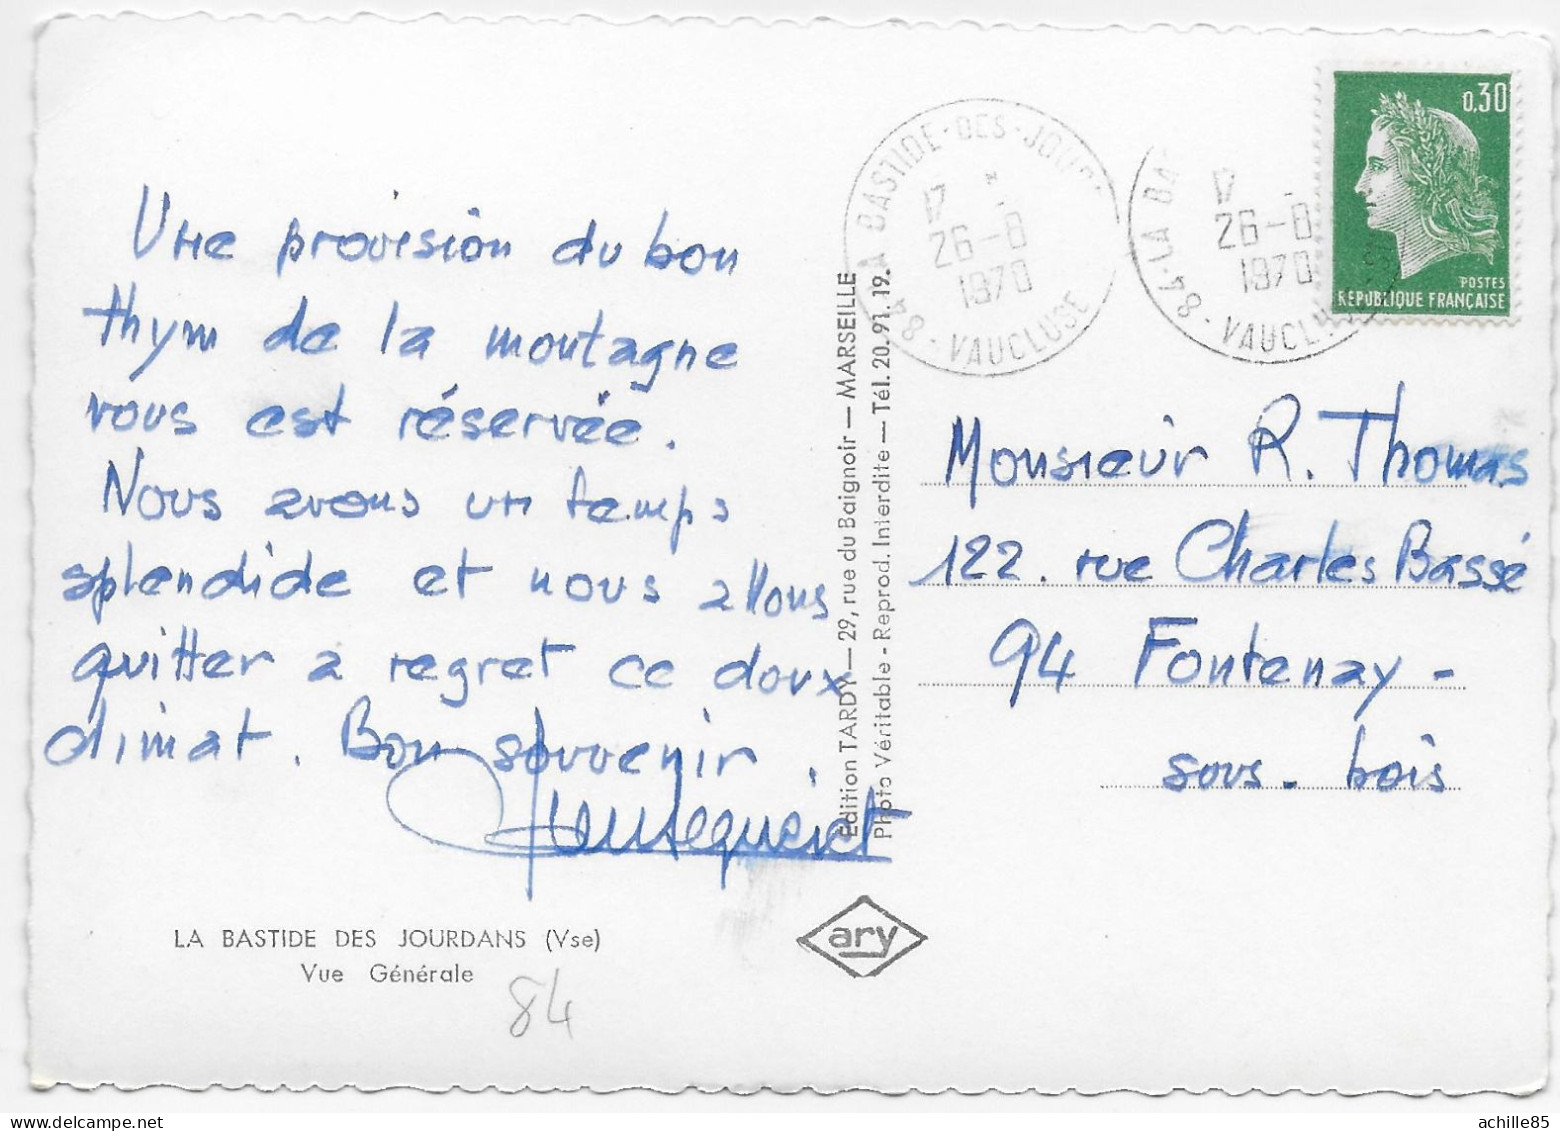 Une provision du bon
thym de la montagne
vous est réservée.
Nous avons un temps
splendide et nous allons
quitter a regret ce doux
climat. Bon souvenir.
LA BASTIDE DES JOURDANS (Vse)
Vue Générale
84
Edition TARDY — 29, rue du Baignoir — MARSEILLE
Photo Véritable - Reprod. Interdite — Tél. 20.91.19.
ary
84 - LA BASTIDE-DES-JOURD
17 *
26-8
1970
VAUCLUSE
84-LA BA
17
26-8
1970
VAUCLUSE
0,30
POSTES
REPUBLIQUE FRANÇAISE
Monsieur R. Thomas
122. rue Charles Bassé
94 Fontenay -
sous - bois
achille85